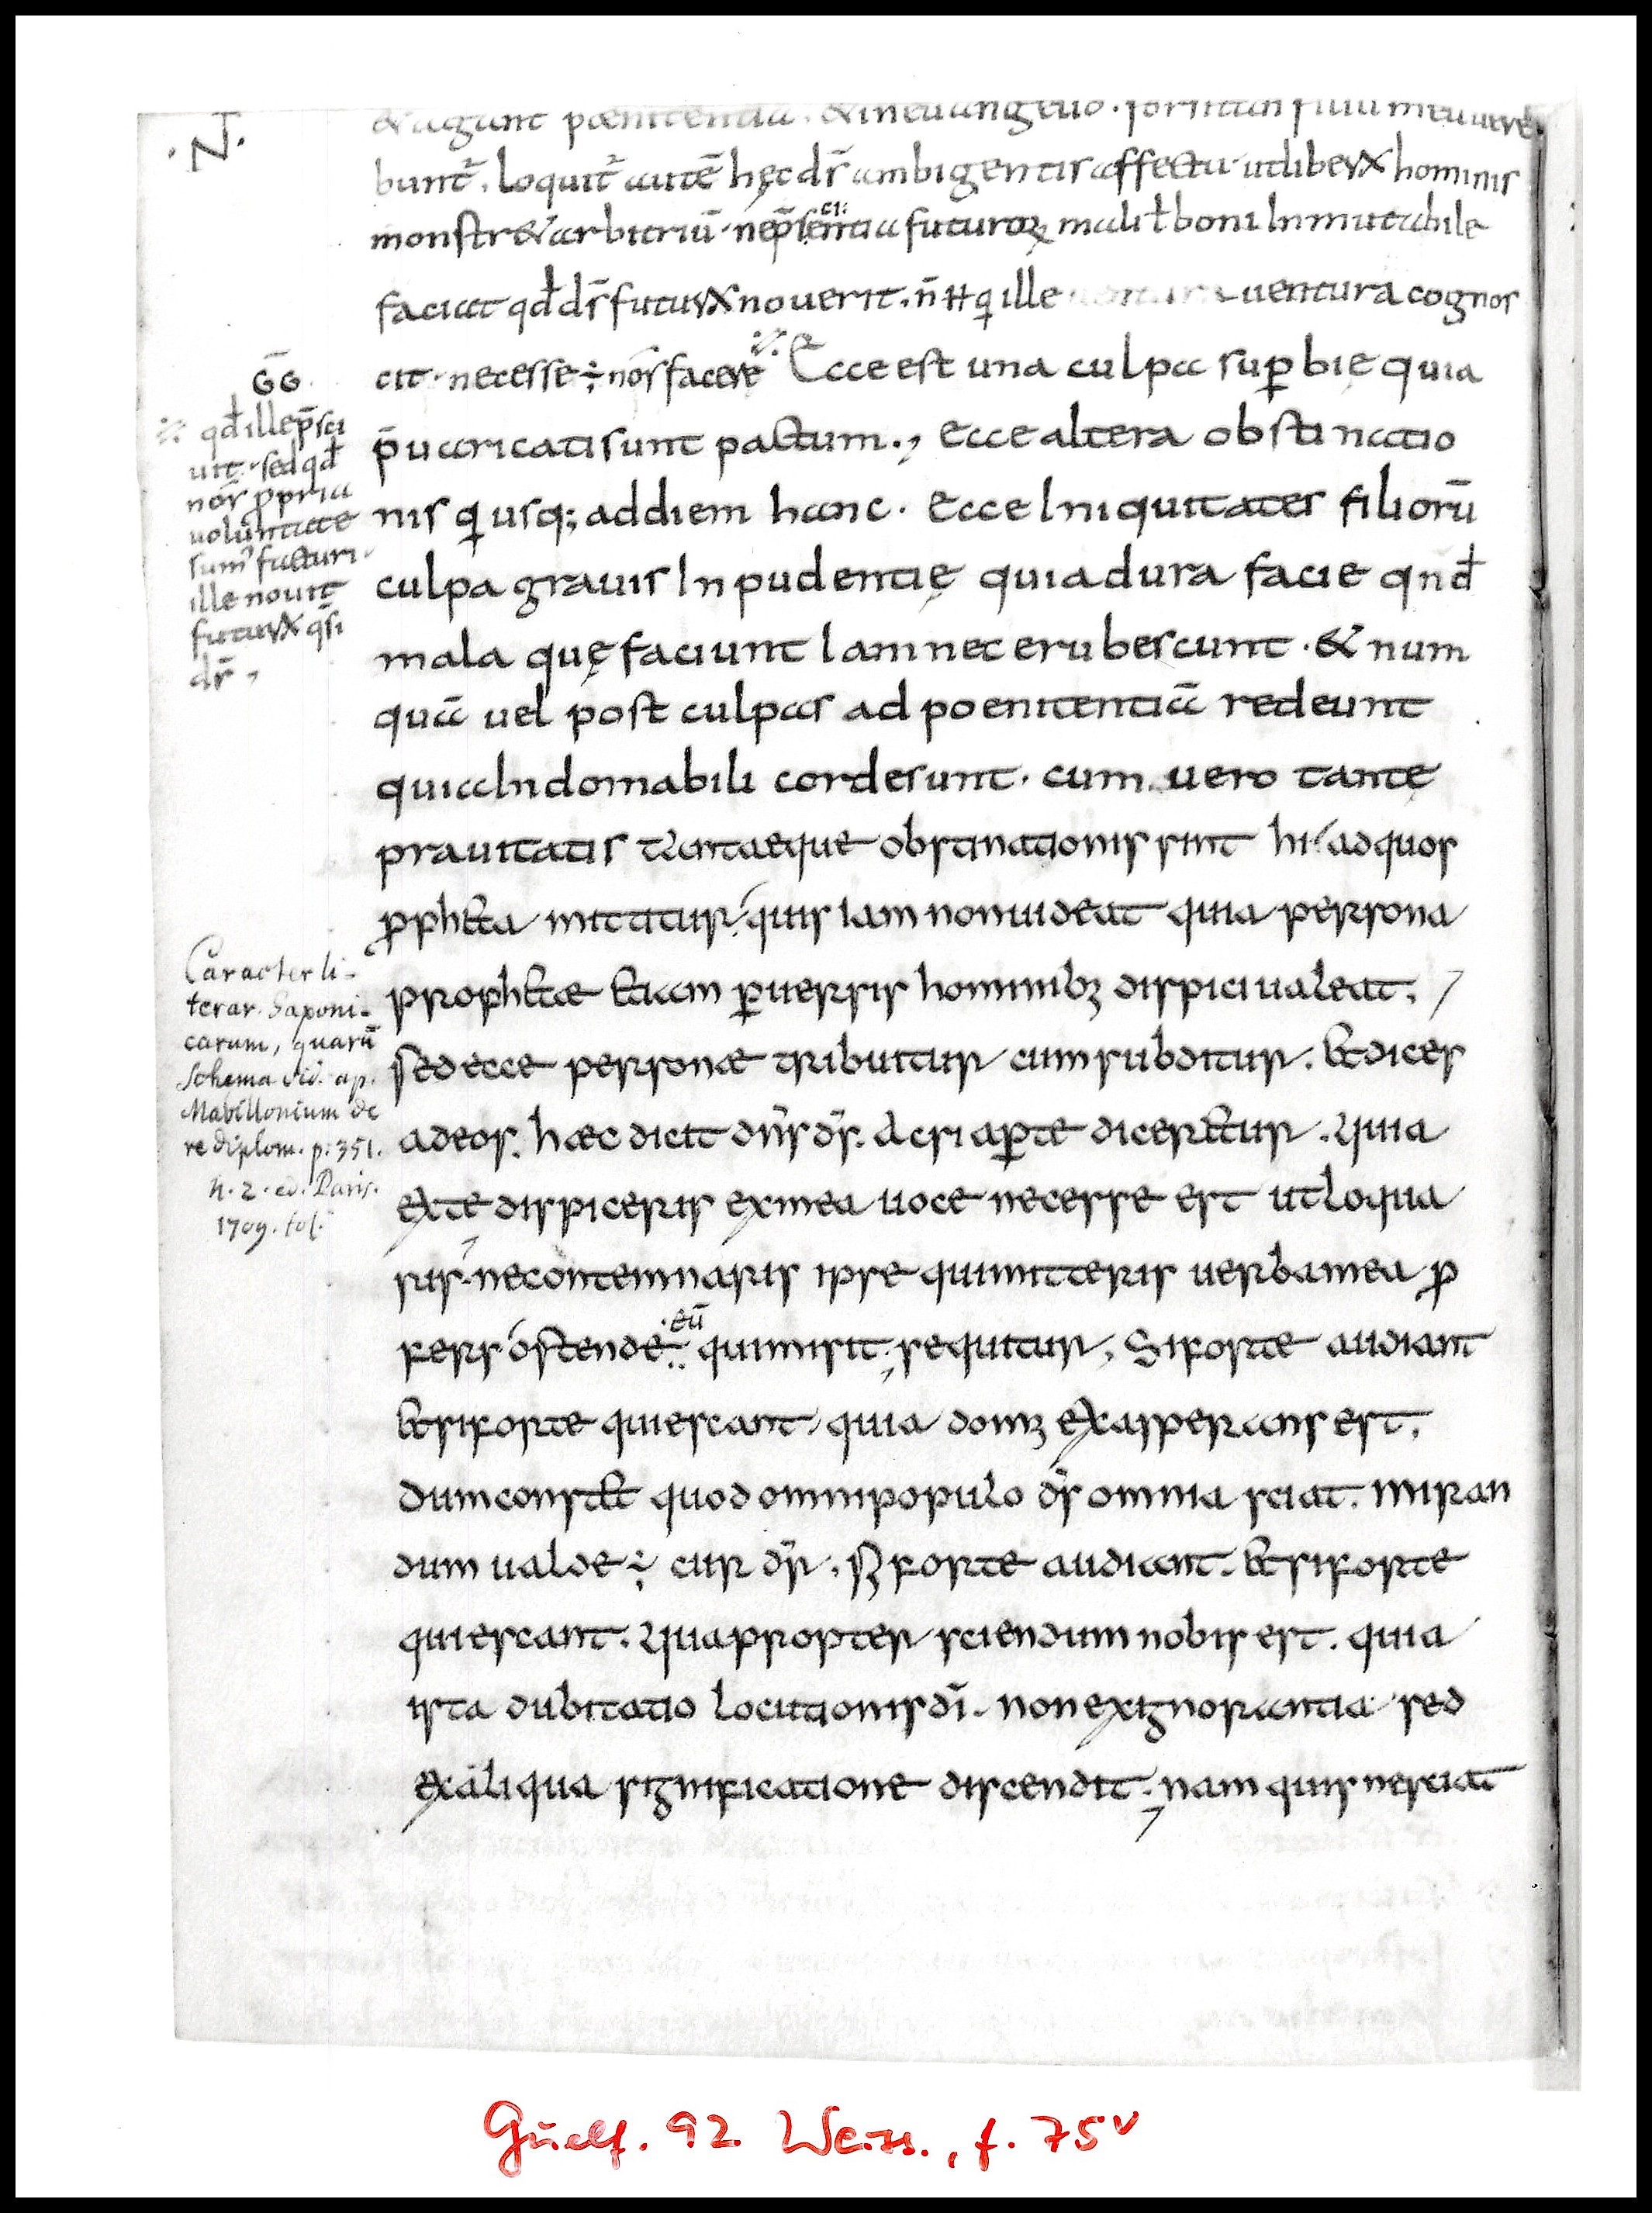 ·N̄·
& agant pœnitentiā. & in euangelio. forsitan filiū meū uere
bunt᷑. loquit᷑ autē hęc dr̄ ambigentis affectu· ut liberx hominis
monstr& arbitriū· ne p̄sentia futuroꝝ mali ł boni Inmutabile
ci:
faciat qđ dr̄ futurx nouerit. n̄ ꟻ qi ille uentura cognos
cit· necesse ÷ nos̄ facere Ecce est una culpa suꝑbię quia
p̄uaricati sunt pactum., Ecce altera obstinatio
nis qi usq; ad diem hanc. Ecce Iniquitates filiorū
culpa grauis Inpudentię quia dura facie qnđ
mala quę faciunt Iam nec erubescunt. & num
quā uel post culpas ad poenitentiā redeunt
quia Indomabili corde sunt. cum uero tantę
prauitatis tantaeque obstinationis sint hi ad quos
ꝓph&a mittitur; quis iam non uideat quia persona
proph&ae &iam ꝑuersis hominibꝫ dispici ualeat,
sed ecce personae tribuitur cum subditur. & dices
ad eos. haec dicit dn̄s ds̄. Ac si aꝑte dicer&ur. Quia
ex te dispiceris ex mea uoce necesse est ut loqua
ris. ne contemnaris ipse qui mitteris uerba mea ꝓ
fers ostende qui misit, sequitur, Si forte audiant
·eū
& si forte quiescant, quia domꝫ exasperans est,
dum const& quod omni populo ds̄ omnia sciat. miran
dum ualde ÷ cur dr̄, sꝫ forte audiant. & si forte
quiescant. Quapropter sciendum nobis est. quia
ista dubitatio locutionis dī. non ex ignorantia sed
ex aliqua significatione discendit. nam quis nesciat
ḠḠ
qđ ille p̄sci
uit· sed qđ
nos̄ ꝓpria
uoluntate
sum᾽ facturi
ille nouit
futurx qsi
dr̄,
Caracter li-
terar. Saxoni-
carum, quarū
Schema vid. ap.
Mabillonium de
re diplom. p. 351.
n. 2. ed. Paris.
1709. fol.
Guelf. 92 Weiss., f. 75v